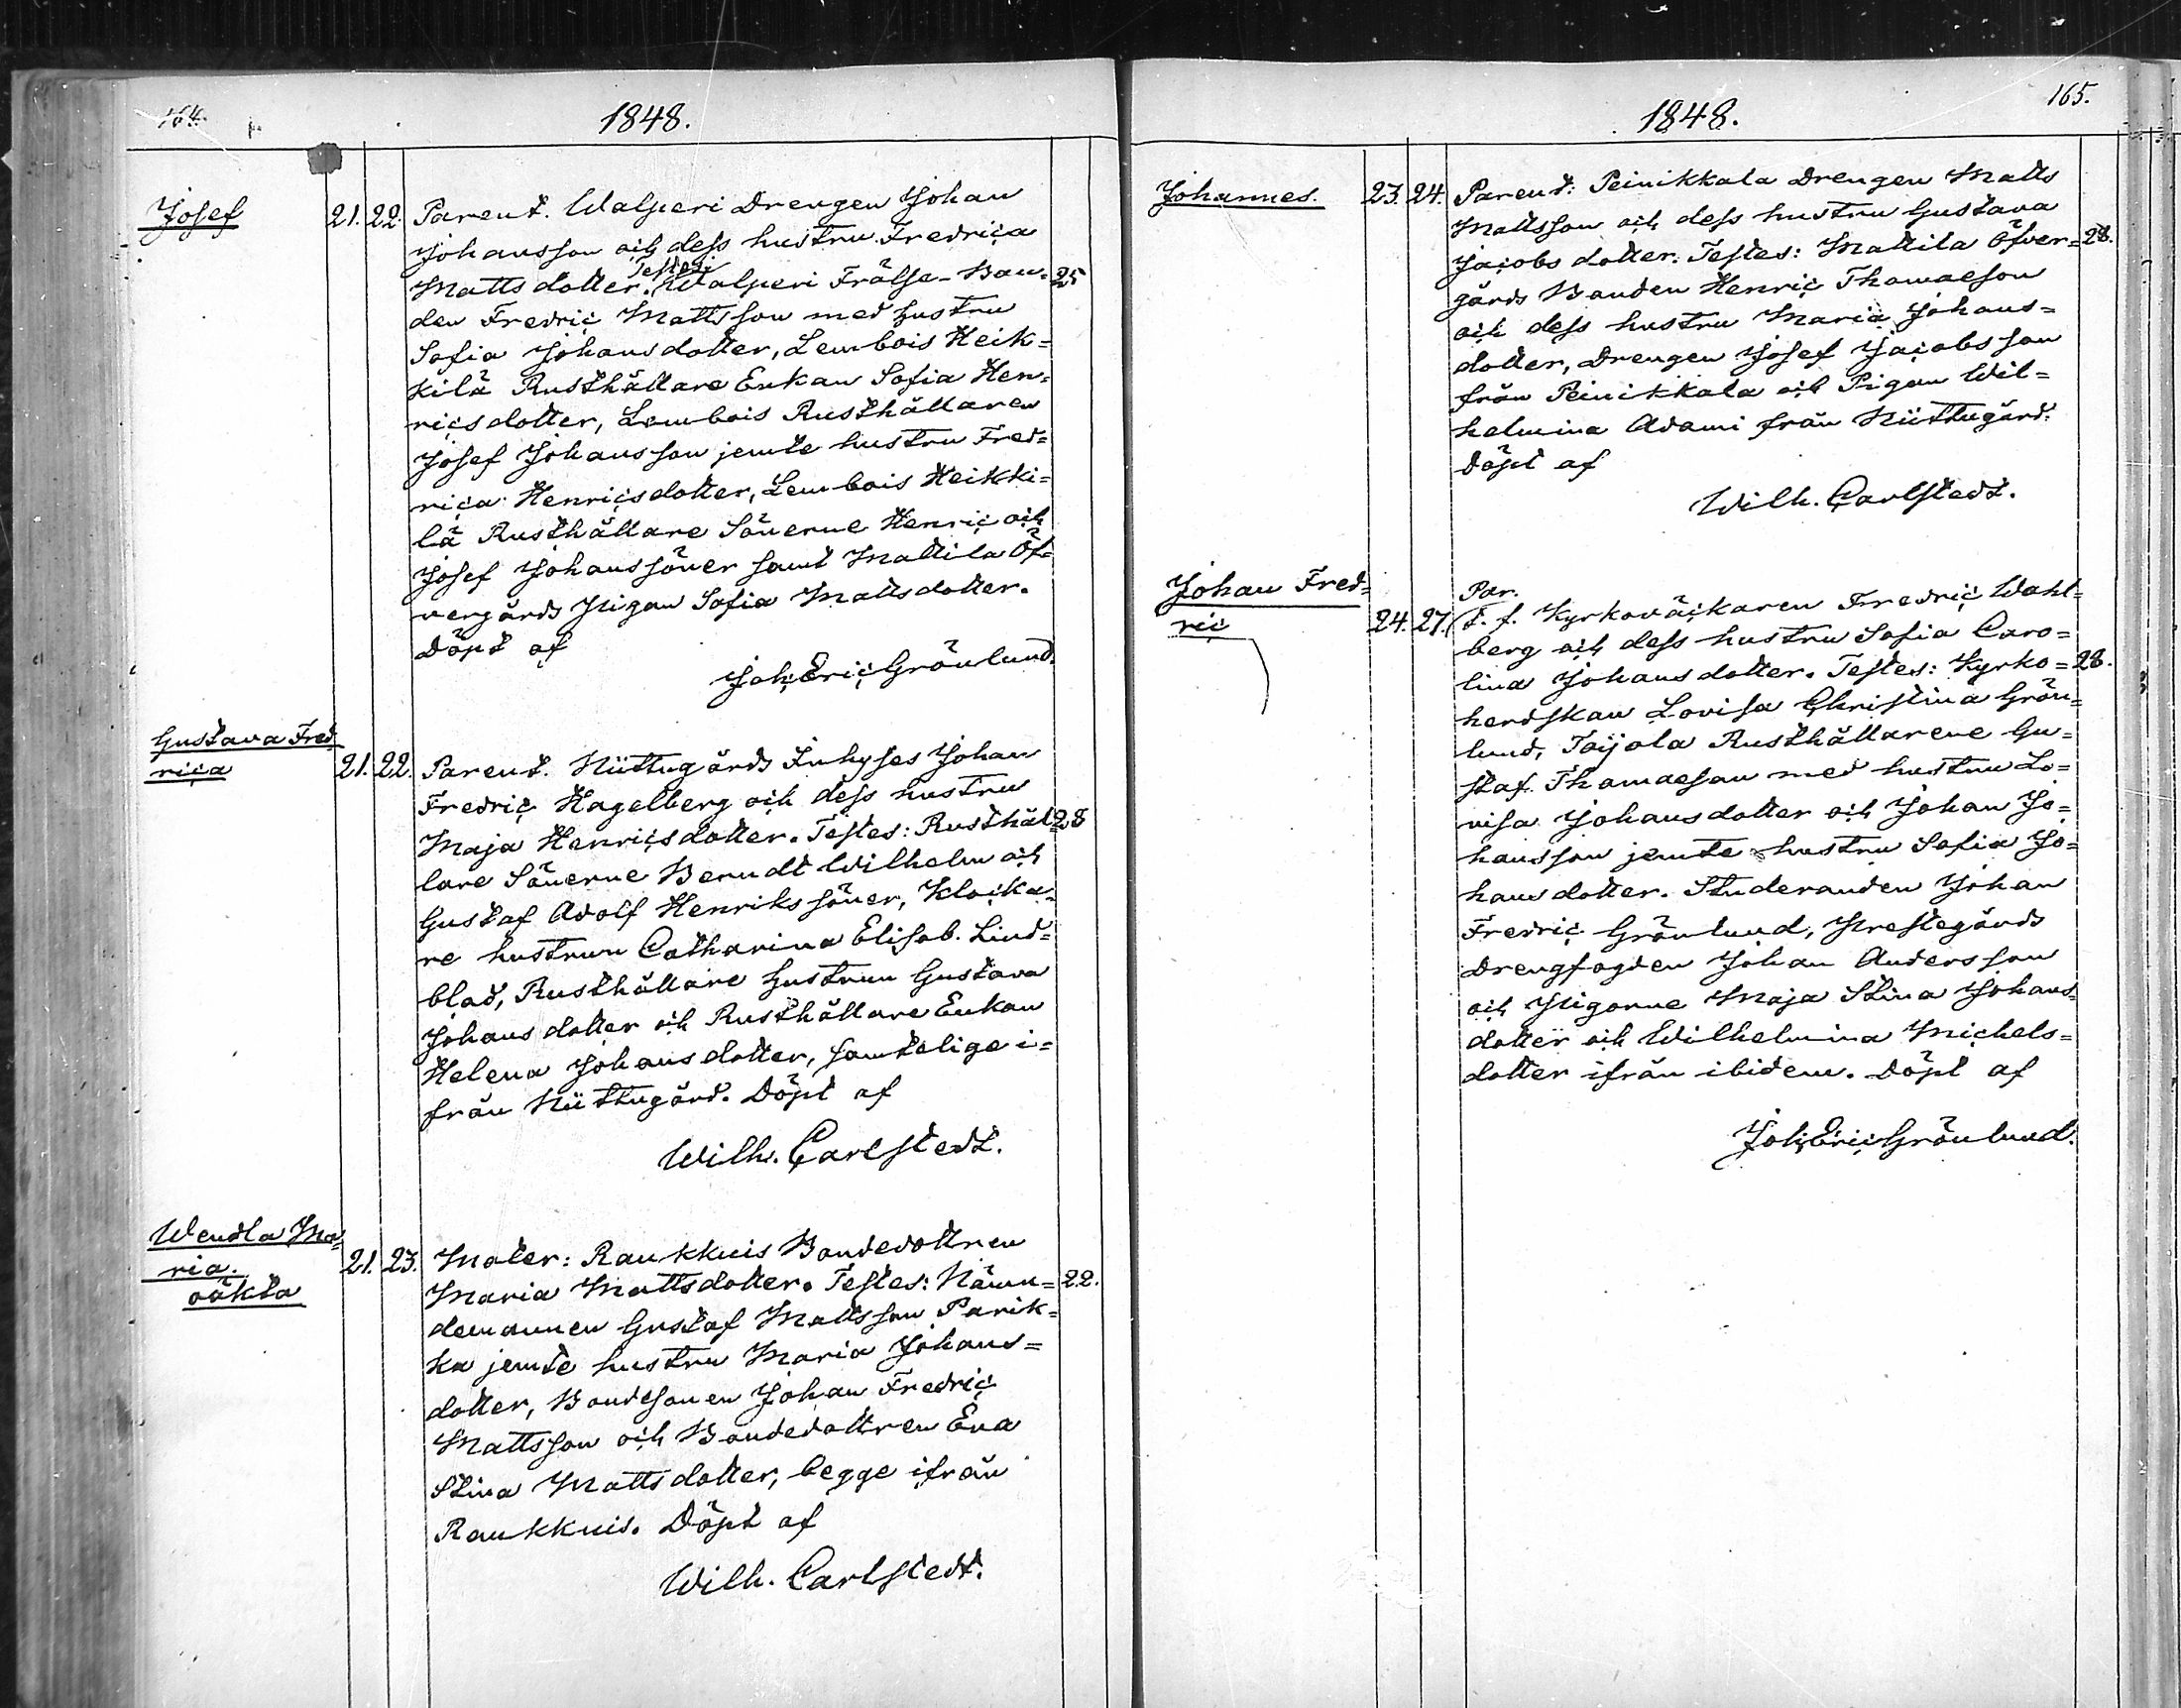 164.
1848.
Josef
21. 22. Parent. Walperi Drengen Johan
Johansson och dess hustru Fredrica
Testes:
Matts dotter. Walperi Frälse-Bon- 25
den Fredric Mattsson med hustru
Sofia Johansdotter, Lembois Heik=
kilä Rusthållare Enkan Sofia Hen=
ricsdotter, Lembois Rusthållaren
Josef Johansson jemte hustru Fred=
rica Henricsdotter, Lembois Heikki=
lä Rusthållare Sönerne Henric och
Josef Johanssöner samt Mattila Öf=
vergårds Pigan Sofia Mattsdotter.
Döpt af
Joh. Eric Grönlund.
Gustava Fred=
rica
21. 22. Parent. Niittugårds Inhyses Johan
Fredric Hagelberg och dess hustru
Maja Henricsdotter. Testes: Rusthål= 28
lare Sönerne Berndt Wilhelm och
Gustaf Adolf Henrikssöner, Klocka=
re hustrun Catharina Elisab. Lind=
blad, Rusthållare hustrun Gustava
Johansdotter och Rusthållare Enkan
Helena Johansdotter, samtelige i=
från Niittugård. Döpt af
Wilh. Carlstedt.
Wendla Ma=
ria.
oäkta
21. 23. Mater: Raukkuis Bondedottren
Maria Mattsdotter. Testes: Näm= 22.
demannen Gustaf Mattsson Parik=
ka jemte hustru Maria Johans=
dotter, Bondsonen Johan Fredric
Mattsson och Bondedottren Eva
Stina Mattsdotter, begge ifrån
Raukkuis. Döpt af
Wilh. Carlstedt.
165.
1848.
Johannes.
23. 24. Parent: Peinikkala Drengen Matts
Mattsson och dess hustru Gustava
Jacobs dotter. Testes: Mattila Öfver= 28.
gårds Bonden Henric Thomaeson
och dess hustru Maria Johans=
dotter, Drengen Josef Jacobsson
från Peinikkala och Pigan Wil=
helmina Adami från Niittugård.
Döpt af
Wilh. Carlstedt.
Johan Fred=
ric
Par.
24. 27. T. f. Kyrkoväckaren Fredric Wahl=
berg och dess hustru Sofia Caro=
lina Johansdotter. Testes: Kyrko= 28.
herdskan Lovisa Christina Grön=
lund, Toijola Rusthållarene Gu=
staf Thomaeson med hustru Lo=
visa Johansdotter och Johan Jo=
hansson jemte hustru Sofia Jo=
hansdotter. Studeranden Johan
Fredric Grönlund, Prestegårds
Drengfogden Johan Andersson
och Pigorne Maja Stina Johans=
dotter och Wilhelmina Michels=
dotter ifrån ibidem. Döpt af
Joh. Eric Grönlund.